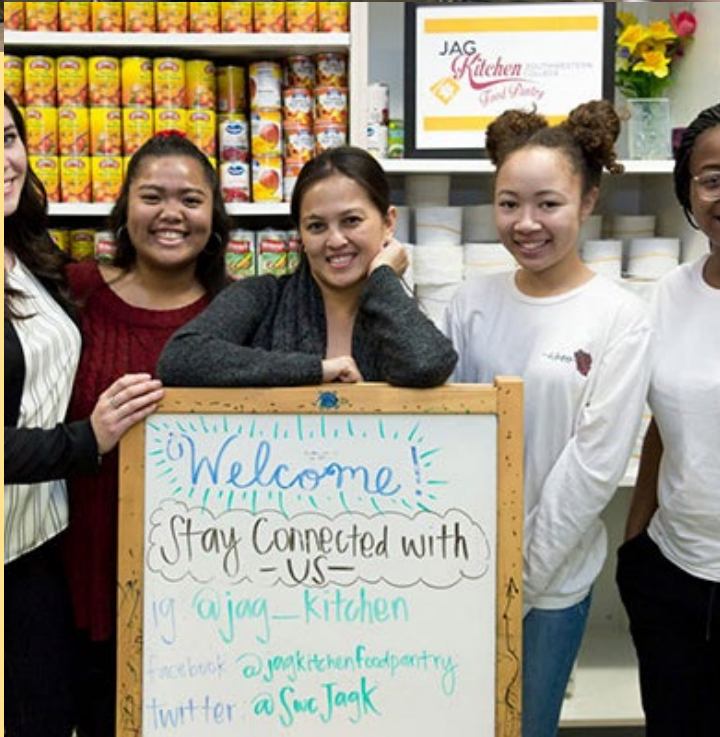 JAG
Kitchen
SOUTHWESTERN
COLLEGE
Food Pantry
Welcome!
Stay Connected with
-US-
ig: @jag_kitchen
facebook @jagkitchenfoodpantry
twitter: @SwcJagk